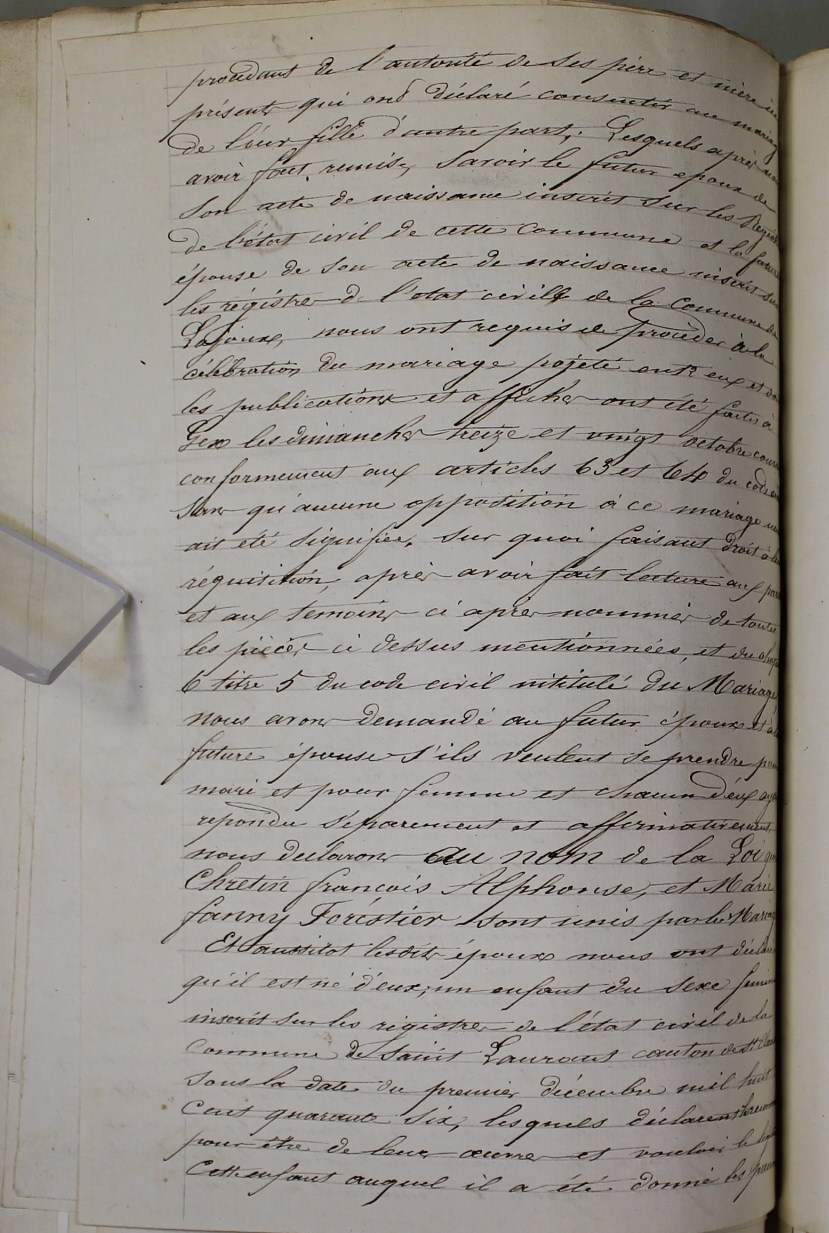 procédant de l'autorité de ses père et mère ici
présents qui ond déclaré consentir au mariage
de leur fille d'autre part. Lesquels après nous
avoir fait remise, Savoir le futur epoux de
Son acte de naissance inscrit sur les Régist
de l'état civil de cette Commune et la future
épouse de Son acte de naissance inscrit sur
les régistres d l'etat civill de la commune de
Lajoux, nous ont requis de procéder à la
célébration du mariage pojeté entre eux et dont
les publications et affiches ont été faites à
Gex les dimanches treize et vingt octobre courant
conformément aux articles 63 et 64 du code
Sans qu'aucune opposition à ce mariage nous
ait été signifiée, sur quoi faisant droit à leur
réquisition, après avoir fait lecture aux parties
et aux témoins ci après nommés de toutes
les pièces ci dessus mentionnées, et du chapitre
6 titre 5 du code civil intitulé du Mariage,
nous avons demandé au futur époux et à la
future épouse s'ils veulent se prendre pour
mari et pour femme et chacun d'eux ayant
repondu séparement et affirmativement
nous declarons au nom de la Loi que
Chretin françois Alphonse, et Marie
fanny Forestier sont unis par le Mariage
Et aussitot lesdits époux nous ont déclaré
qu'il est né d'eux, un enfant du sexe féminin
inscrit sur les registres de l'état civil de la
Commune de Saint Laurent canton de St
sous la date du premier décembre mil huit
Cent quarante six, lesquels déclarent
pour être de leur œuvre et vouloir le
Cette enfant auquel il a été donné les prénoms